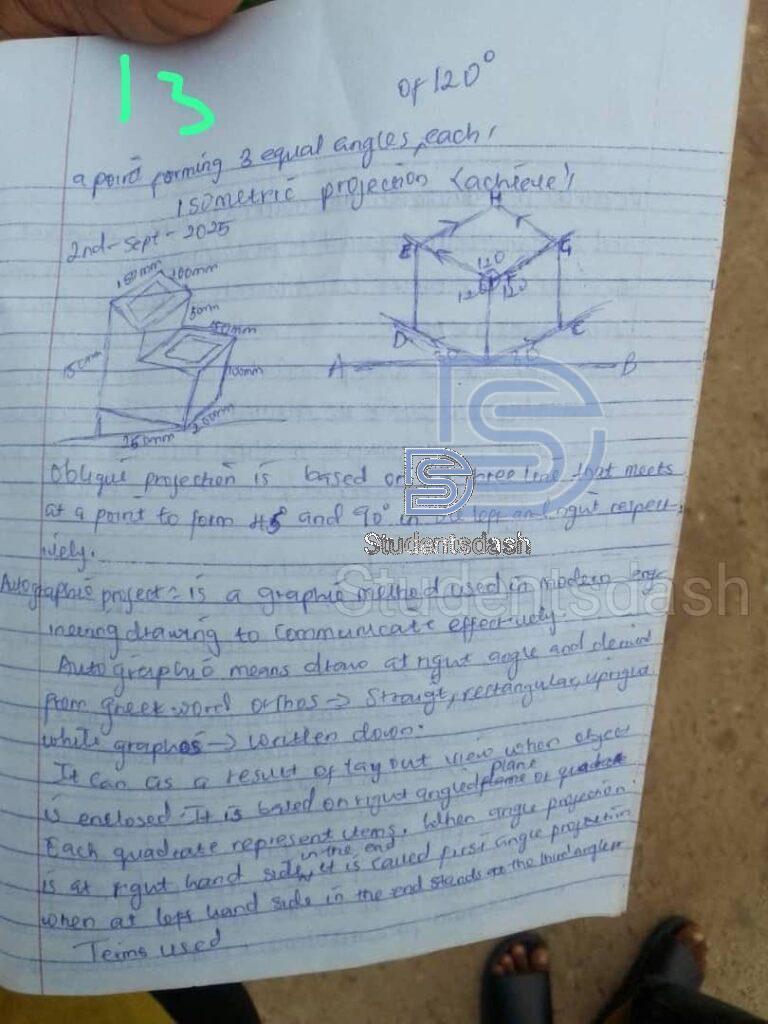 13
of 120°
a point forming 3 equal angles, each,
Isometric projection (achieve)
2nd-Sept-2025
150mm 100mm
50mm
150mm
100mm
200mm
H
E G
120
120 120
D C
A B
Oblique projection is based on three line that meets
at a point to form 45° and 90° in left and right respect-
ively.
Studentsdash
Studentsdash
Autographic project:- is a graphic method used in modern eng-
ineering drawing to communicate effectively.
Autographic means draw at right angle and derived
from greek word orthos → straigt, rectangular, upright
while graphos → written down.
It can as a result of lay out view when object
is enclosed. It is based on right angled plane or
plane
Each quadrate represent items. When angle projection
is at right hand side, it is called first angle projection
in the end
when at left hand side in the end stands as the third angle
Terms used